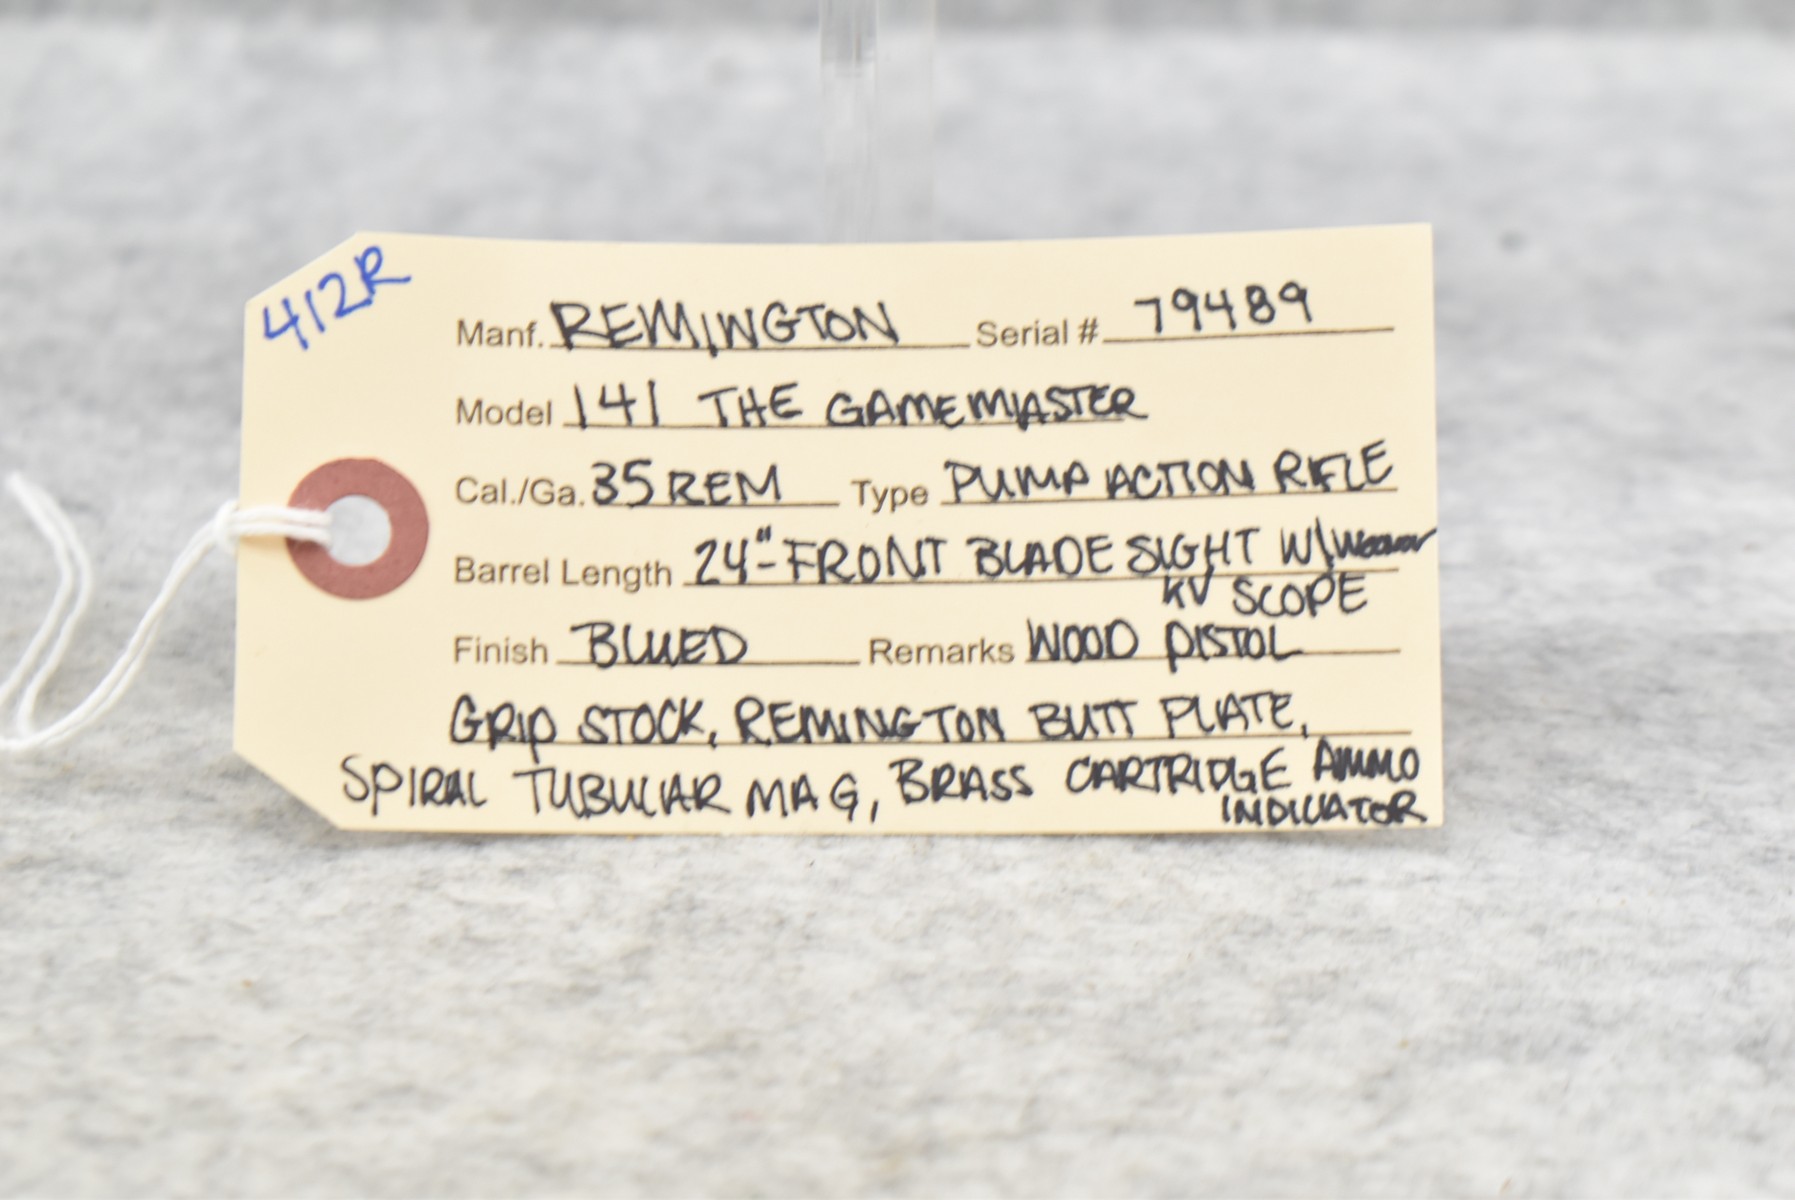 412R
Manf. REMINGTON Serial # 79489
Model 141 THE GAMEMASTER
Cal./Ga. 35 REM Type PUMP ACTION RIFLE
Barrel Length 24"-FRONT BLADE SIGHT W/Weaver
KV SCOPE
Finish BLUED Remarks WOOD PISTOL
GRIP STOCK, REMINGTON BUTT PLATE,
SPIRAL TUBULAR MAG, BRASS CARTRIDGE AMMO
INDICATOR